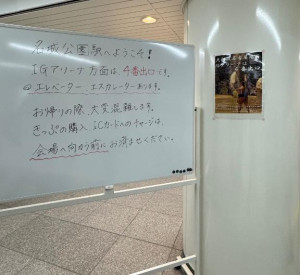 名城公園駅へようこそ!
IGアリーナ方面は、4番出口です。
エレベーター、エスカレーターあります。
お帰りの際、大変混雑します。
きっぷの購入、ICカードへのチャージは、
会場へ向かう前にお済ませください。